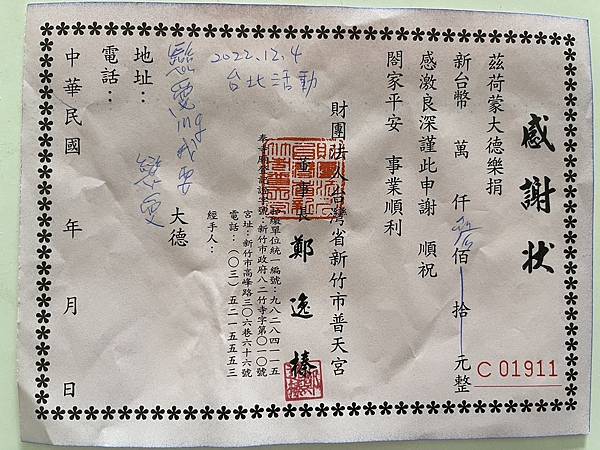 感謝狀
茲荷蒙大德樂捐
新台幣 萬 仟 佰 拾 元整
C 01911
感激良深謹此申謝 順祝
閤家平安 事業順利
財團法人台灣省新竹市普天宮
董事長 鄭逸榛
扣繳單位統一編號：九八二八四一一五
奉寺廟登記證字號：新竹市政府八二竹寺字第〇一〇號
宮址：新竹市高峰路三〇六巷六十六號
電話：（〇三）五二一五五五三
經手人：
2022.12.4
台北活動
大德
地址：
電話：
中華民國 年 月 日